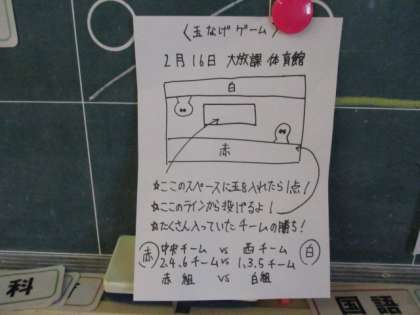 〈玉なげゲーム〉
2月16日 大放課 体育館
白
赤
☆ここのスペースに玉を入れたら1点!
☆ここのラインから投げるよ!
☆たくさん入っていたチームの勝ち!
赤 中央チーム vs 西チーム 白
2.4.6チーム vs 1.3.5チーム
赤組 vs 白組
科
国語